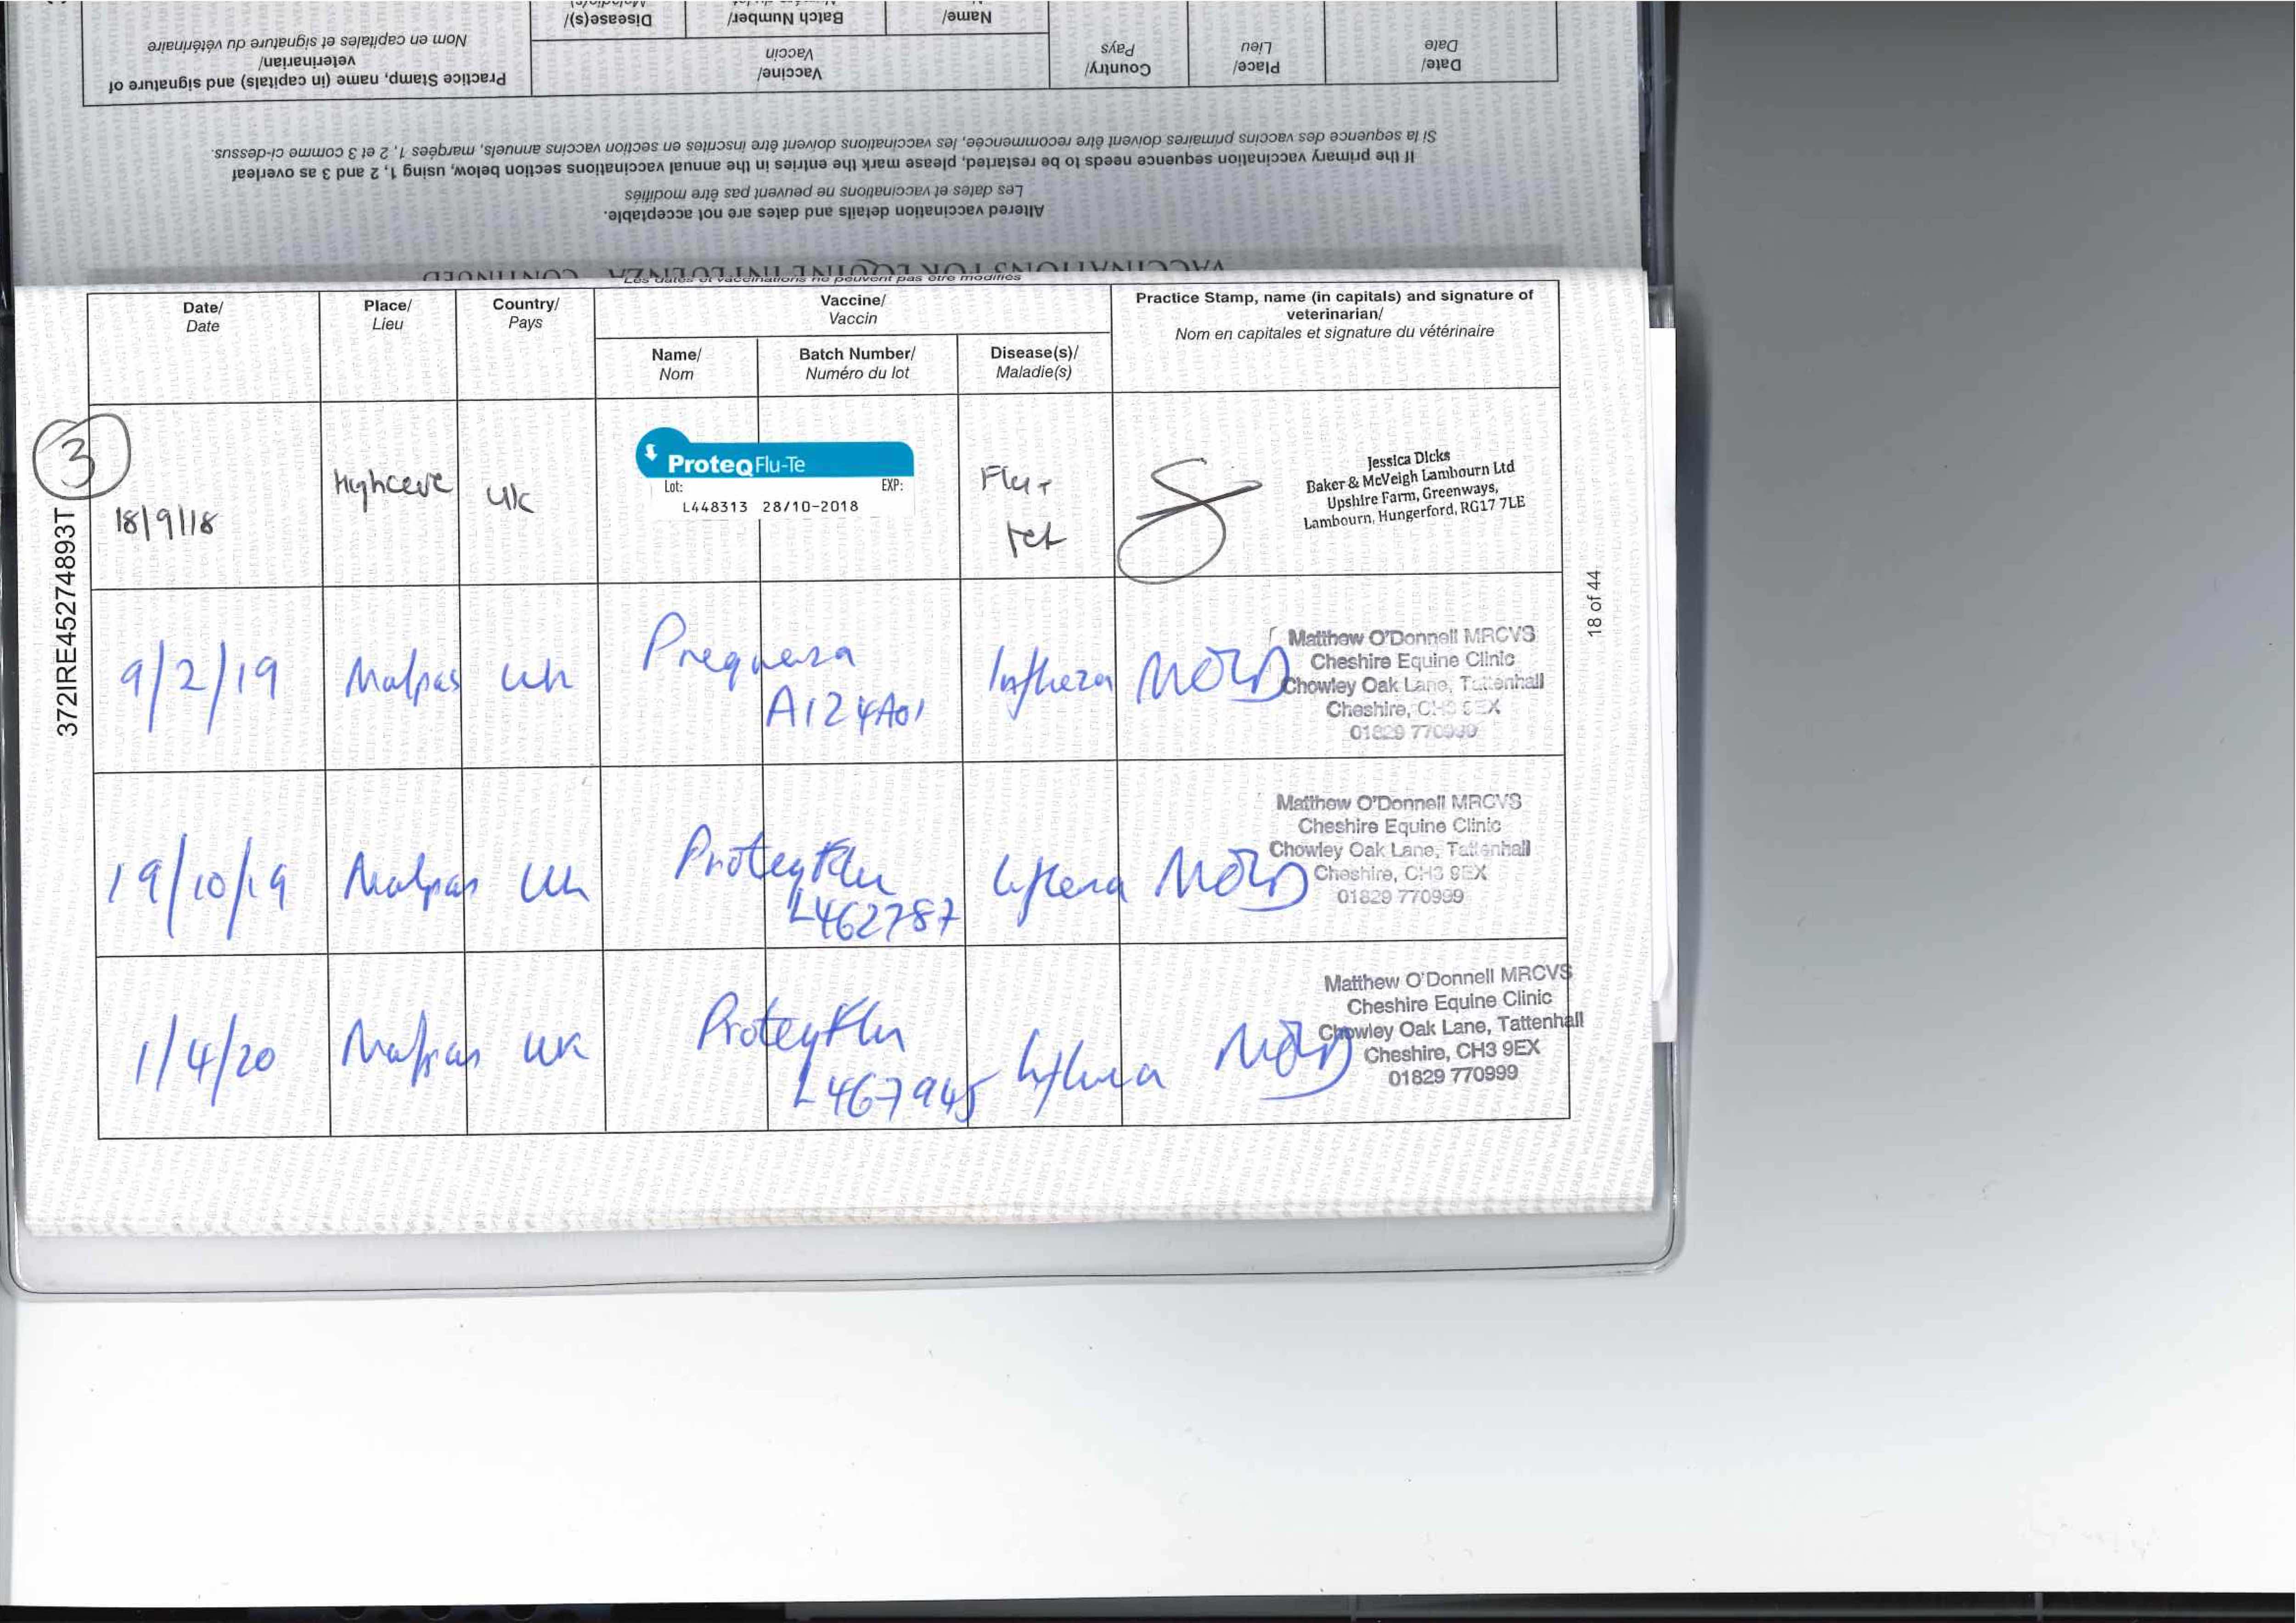 Nom en capitales et signature du vétérinaire
Practice Stamp, name (in capitals) and signature of
veterinarian/
Disease(s)/
Batch Number/
Name/
Vaccine/
Vaccin
Country/
Pays
Place/
Lieu
Date/
Date
Si la sequence des vaccins primaires doivent être recommencée, les vaccinations doivent être inscrites en section vaccins annuels, marqées 1, 2 et 3 comme ci-dessus.
If the primary vaccination sequence needs to be restarted, please mark the entries in the annual vaccinations section below, using 1, 2 and 3 as overleaf
Les dates et vaccinations ne peuvent pas être modifiés
Altered vaccination details and dates are not acceptable.
VACCINATIONS FOR EQUINE INFLUENZA CONTINUED
Les dates et vaccinations ne peuvent pas être modifiés
Date/
Date
Place/
Lieu
Country/
Pays
Vaccine/
Vaccin
Name/
Nom
Batch Number/
Numéro du lot
Disease(s)/
Maladie(s)
Practice Stamp, name (in capitals) and signature of
veterinarian/
Nom en capitales et signature du vétérinaire
3
18/9/18
UK
ProteqFlu-Te
Lot: EXP:
L448313 28/10-2018
Flu +
tet
Jessica Dicks
Baker & McVeigh Lambourn Ltd
Upshire Farm, Greenways,
Lambourn, Hungerford, RG17 7LE
372IRE45274893T
18 of 44
9/2/19
Malpas
UK
A124A01
Matthew O'Donnell MRCVS
Cheshire Equine Clinic
Chowley Oak Lane, Tattenhall
Cheshire,
01829
19/10/19
Malpas
UK
ProteqFlu
L462787
Matthew O'Donnell MRCVS
Cheshire Equine Clinic
Chowley Oak Lane, Tattenhall
Cheshire, CH3 9EX
01829 770999
1/4/20
Malpas
UK
ProteqFlu
L467945
Matthew O'Donnell MRCVS
Cheshire Equine Clinic
Chowley Oak Lane, Tattenhall
Cheshire, CH3 9EX
01829 770999